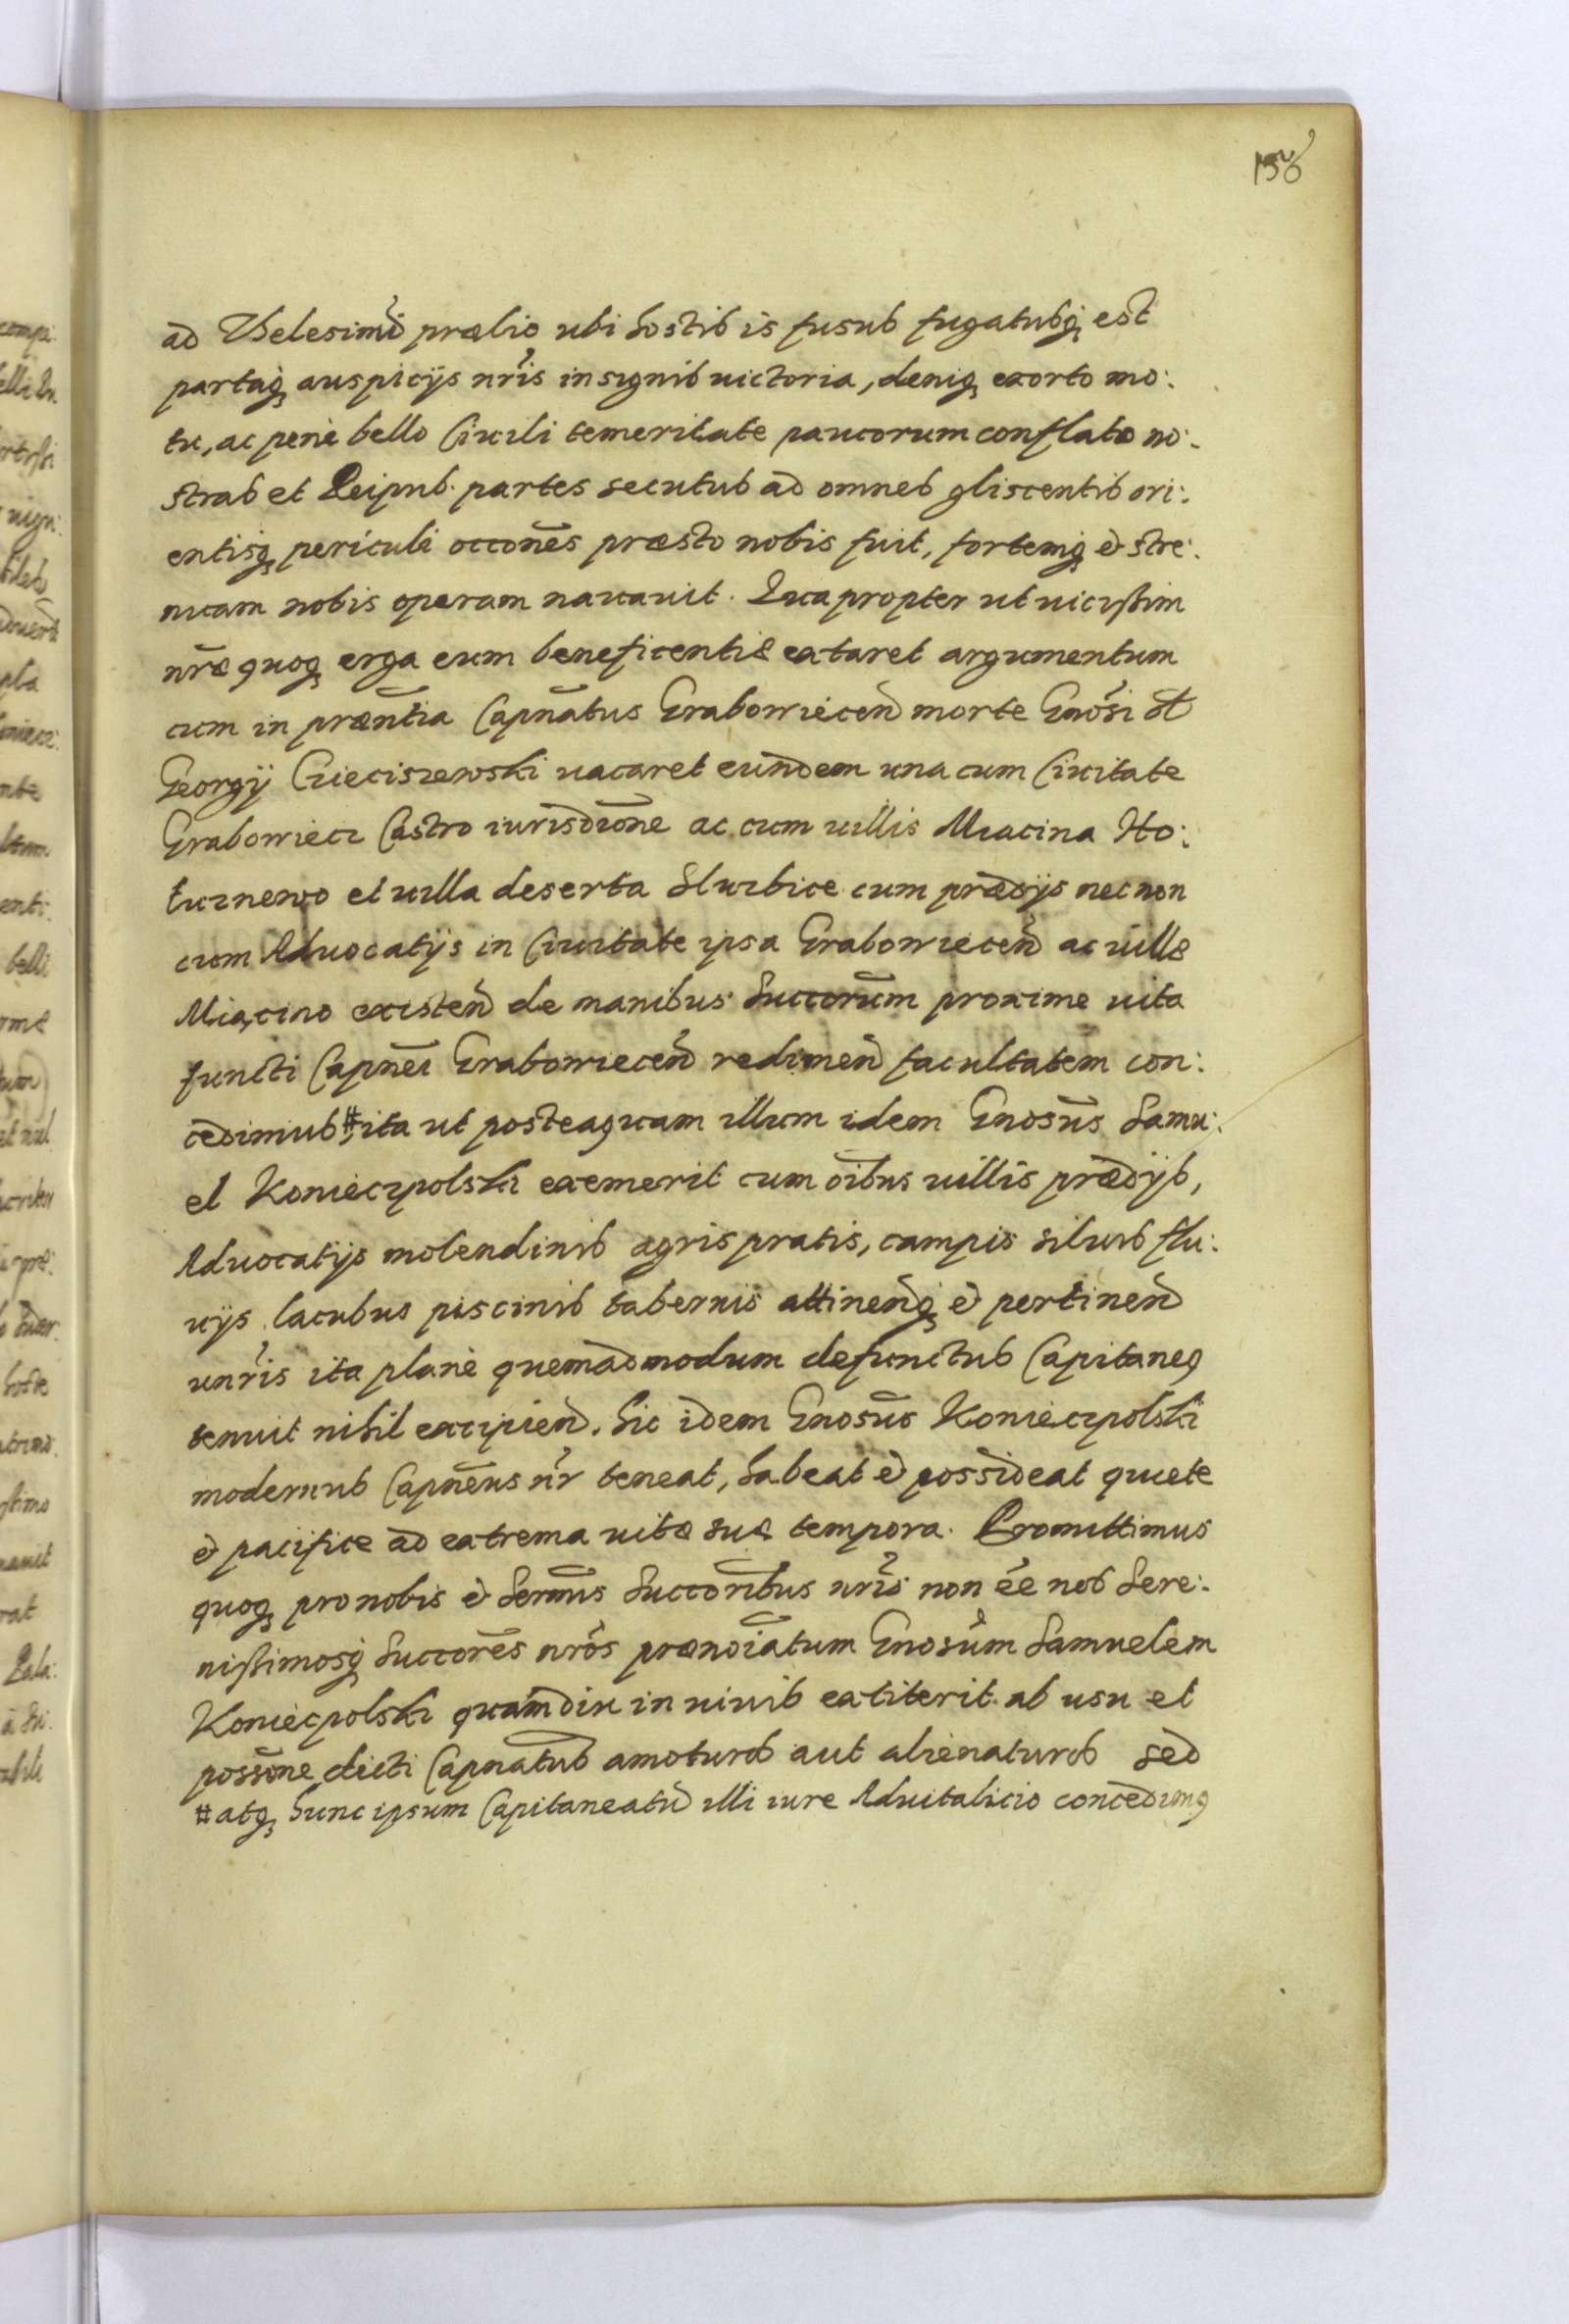 156
ad Thelesimũ prælio ubi hostis is fusus fugatusq; est
partaq; auspicijs nr̃is insignis uictoria, deniq; exorto mo:
tu, ac penè bello Ciuili temeritate paucorum conflato no:
stras et Reipub. partes secutus ad omnes gliscentis ori:
entisq; periculi occoñes præsto nobis fuit, fortemq; & stre:
nuam nobis operam nauauit. Quapropter ut uicissim
nr̃æ quoq; erga eum beneficentiæ extaret argumentum
cum in præntĩa Capnãtus Graboviecen̄ morte Gnõsi olĩ
Georgij Cieciszewski uacaret eundem una cum Ciuitate
Graboviecz Castro iurisdiõne ac cum uillis Miacina Ho:
tuznewo et uilla deserta Sluzbice cum prædijs nec non
cum Aduocatijs in Ciuitate ipsa Graboviecen̄ ac uillæ
Miącino existen̄ de manibus Succorũm proxime uita
functi Capnẽi Graboviecen̄ redimen̄ facultatem con:
cedimus # ita ut posteaquam illum idem Gnosũs Samu:
el Koniecpolski exemerit cum oĩbus uillis prædijs,
Aduocatijs molendinis agris pratis, campis siluis flu:
uijs lacubus piscinis tabernis attinen̄q; & pertinen̄
unr̃is ita planè quemadmodum defunctus Capitaneq
tenuit nihil excipien̄. Sic idem Gnosũs Koniecpolski
modernus Capnẽus nr̃ teneat, habeat & possideat quiete
& pacifice ad extrema uitæ suæ tempora. Promittimus
quoq; pro nobis & Sermĩs Succorĩbus nr̃is non eẽ nos Sere:
nissimosq; Succorẽs nr̃os prænoĩatum Gnosũm Samuelem
Koniecpolski quamdiu in uiuis extiterit ab usu et
possiõne dicti Capnãtus amoturos aut alienaturos sed
# atq; hunc ipsum Capitaneatũ illi iure Aduitalicio concedimq